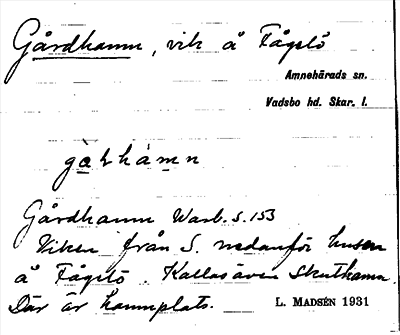 Gårdhamn, vik å Fågelö
Amnehärads sn.
Vadsbo hd. Skar. l.
gàṛhámn
Gårdhamn Warb. s. 153
Viken från S. nedanför husen
å Fågelö. Kallas även Skuthamn.
Där är hamnplats.
L. MADSÉN 1931